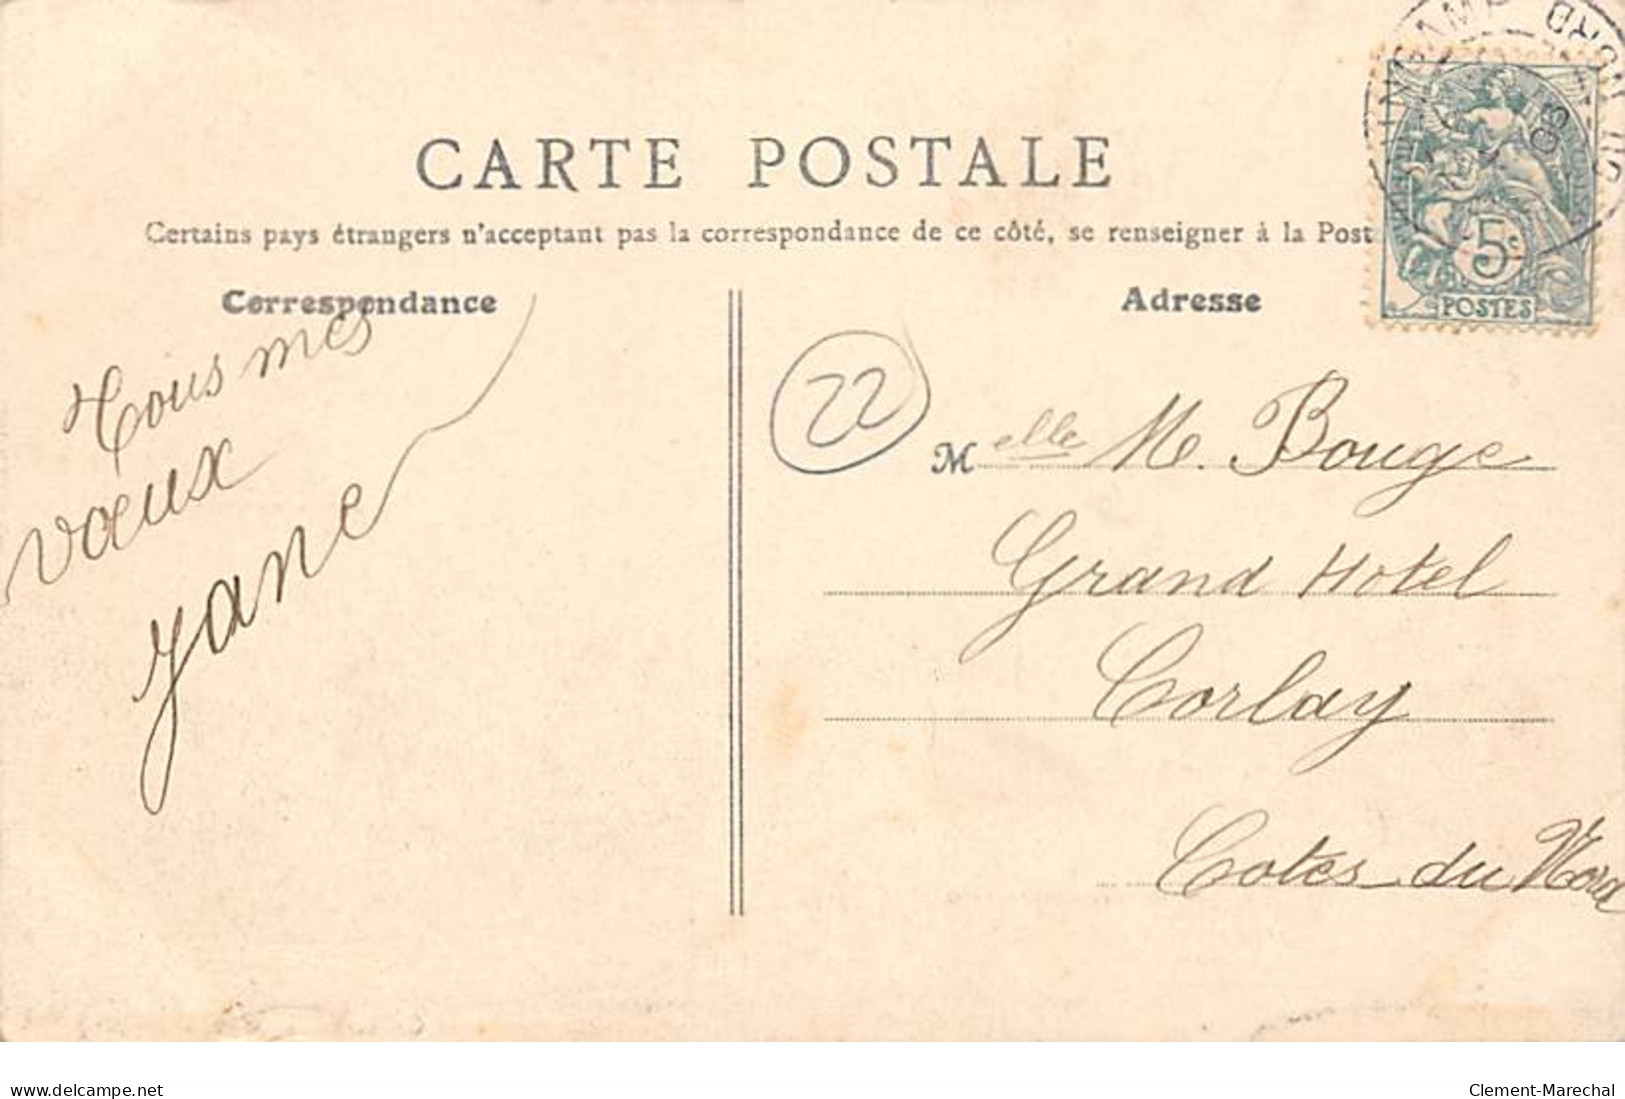 CARTE POSTALE
Certains pays étrangers n'acceptant pas la correspondance de ce côté, se renseigner à la Post
Correspondance
Adresse
5c
POSTES
Tous mes
vœux
Jane
22
Melle M. Bouge
Grand Hotel
Corlay
Cotes du Nord
www.delcampe.net
Clement-Marechal